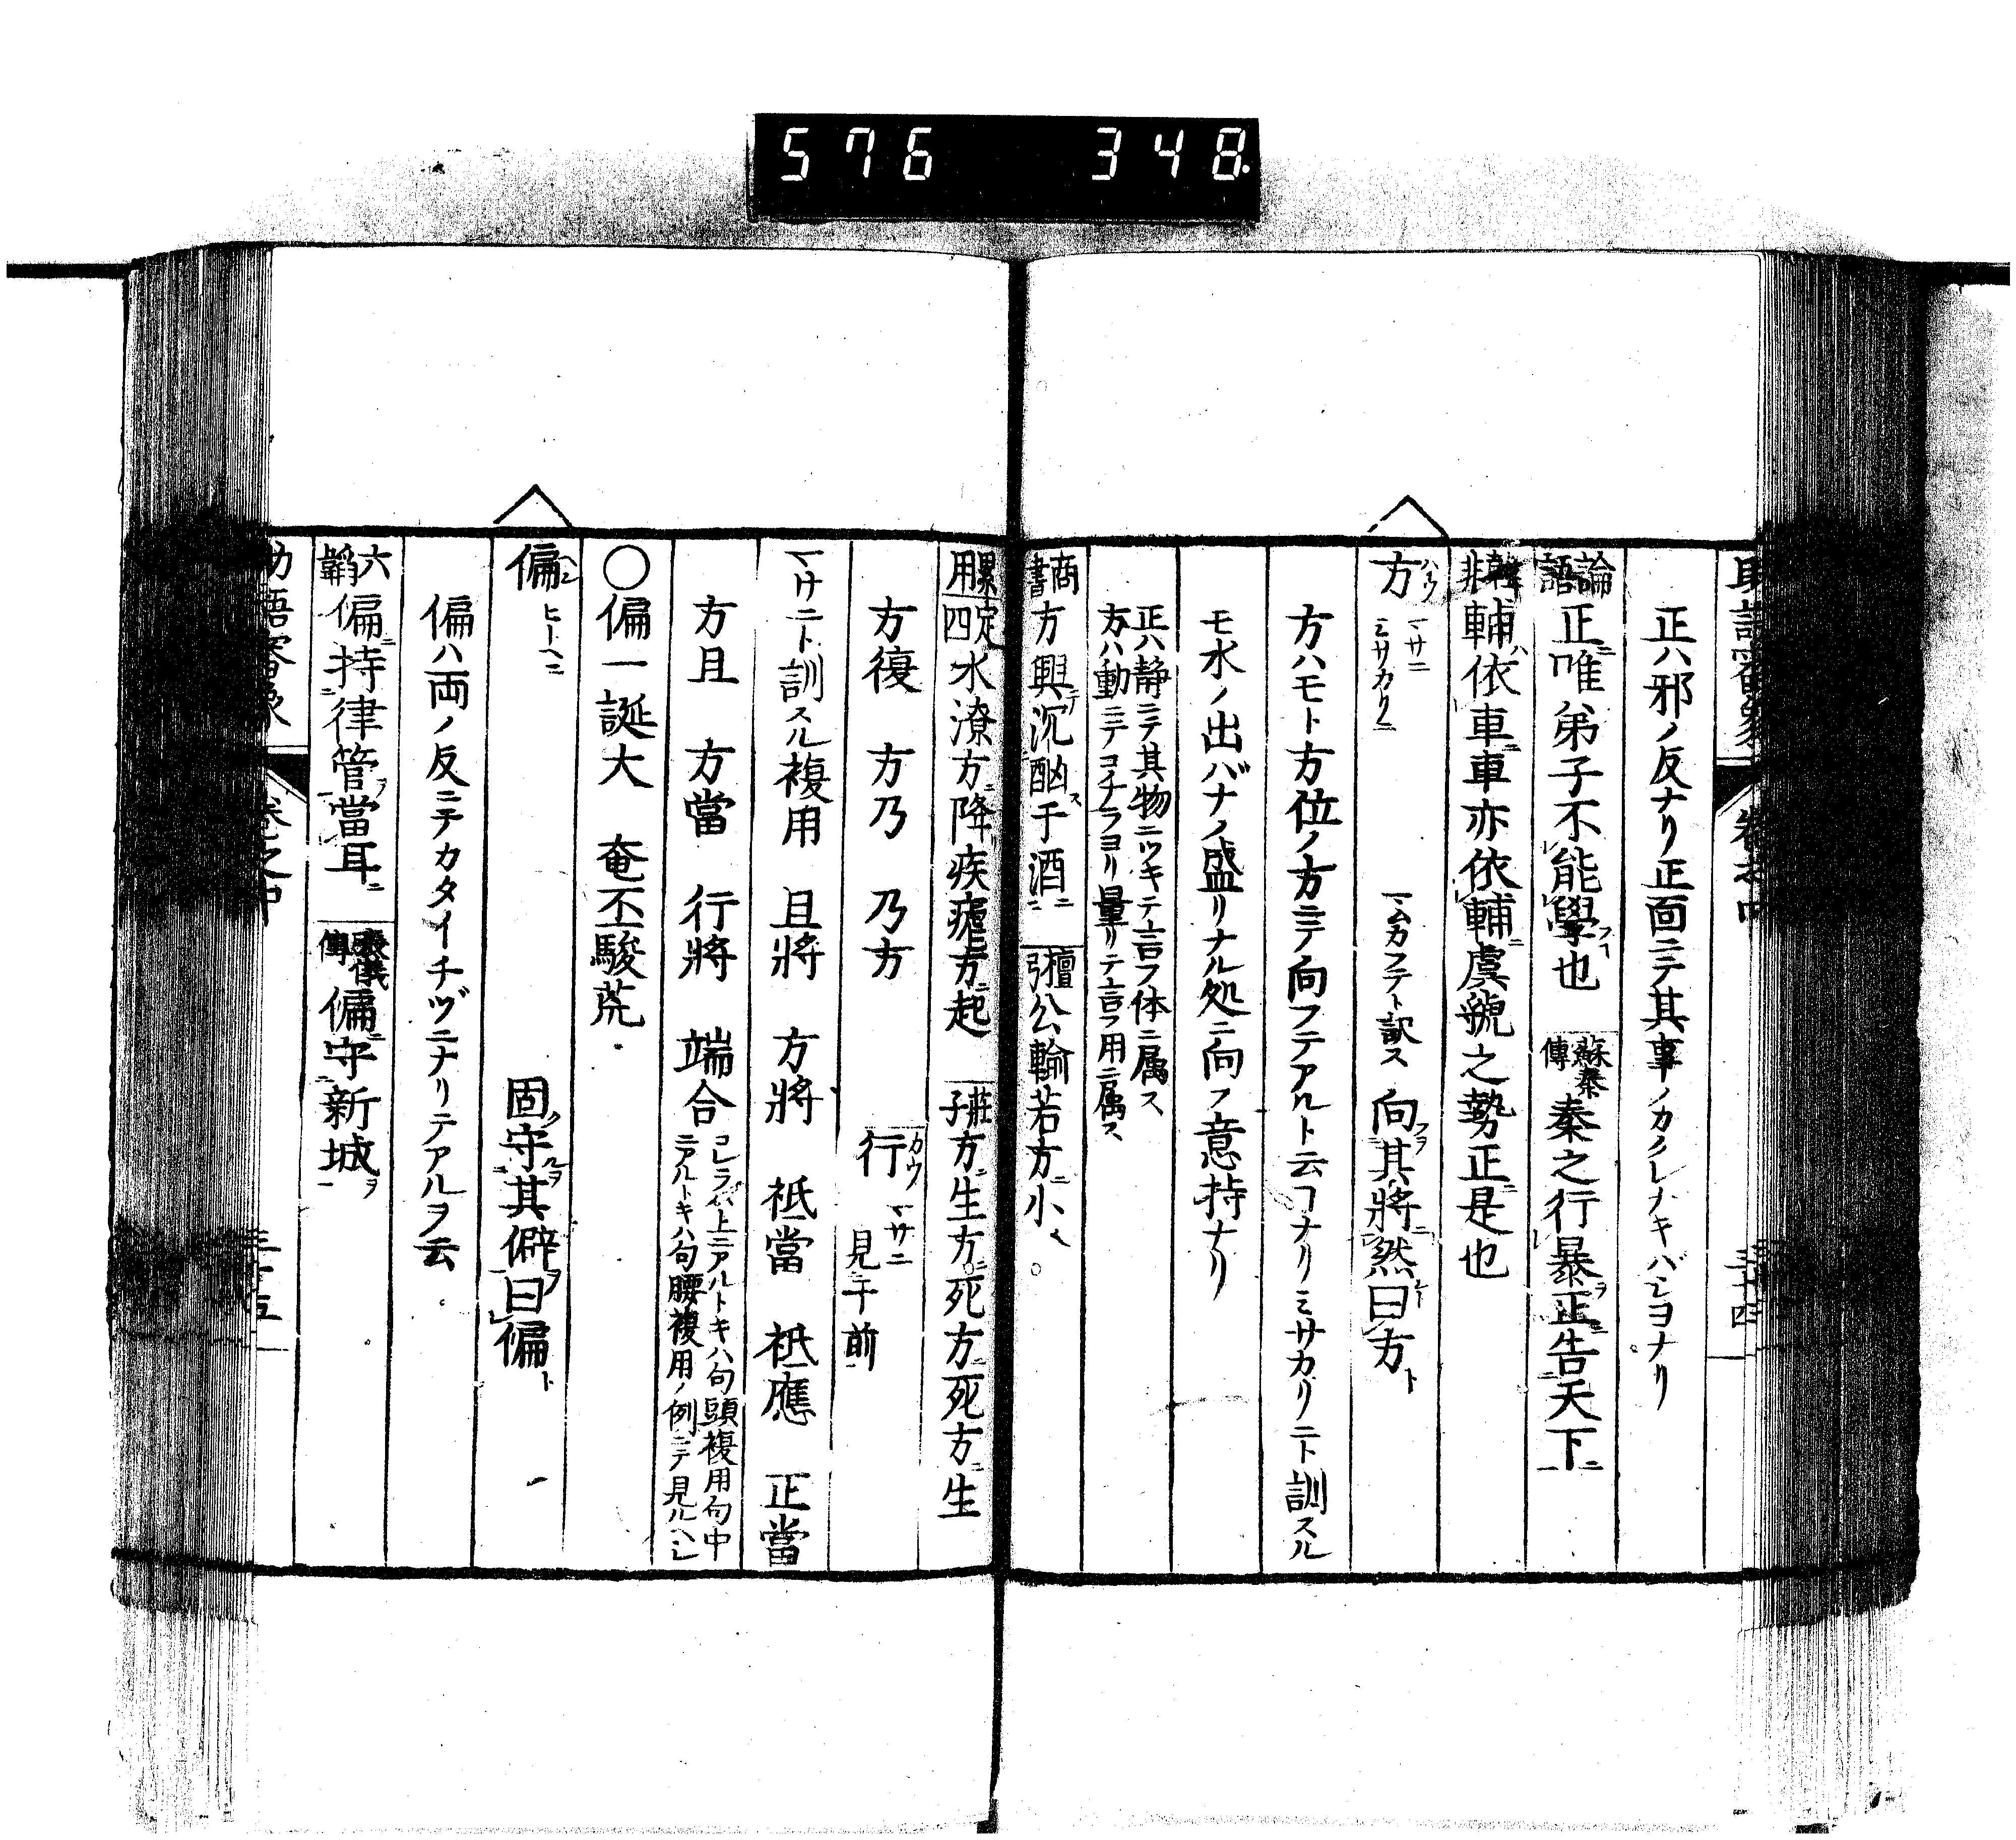 576 348
正ハ邪ノ反ナリ正面ニテ其事ノカクレナキバシヨナリ
論語 正唯弟子不能學也 蘇秦傳 秦之行暴正告天下
韓非 輔依車車亦依輔虞虢之勢正是也
方 ハウ マサニ ミサカリニ マムカフテト訳ス 向其將然曰方
方ハモト方位ノ方ニテ向フテアルト云コナリミサカリニト訓スル
モ水ノ出バナノ盛リナル処ニ向フ意持ナリ
正ハ静ニテ其物ニツキテ言フ体ニ属ス
方ハ動ニテコチラヨリ量リテ言フ用ニ属ス
商書 方興沉酗于酒 檀弓 公輸若方小
累用 定四 水潦方降疾瘧方起 莊子 方生方死方死方生
方復 方乃 乃方 行 カウ マサニ 見于前
マサニト訓スル複用 且將 方將 祗當 祗應 正當
方且 方當 行將 端合 コレラハ上ニアルトキハ句頭複用句中
ニアルトキハ句腰複用ノ例ニテ見ルヘシ
〇偏一誕大 奄丕駿荒
偏 ヘン ヒトヘニ 固守其僻曰偏
偏ハ両ノ反ニテカタイチヅニナリテアルヲ云
六韜 偏持律管當耳 張儀傳 偏守新城